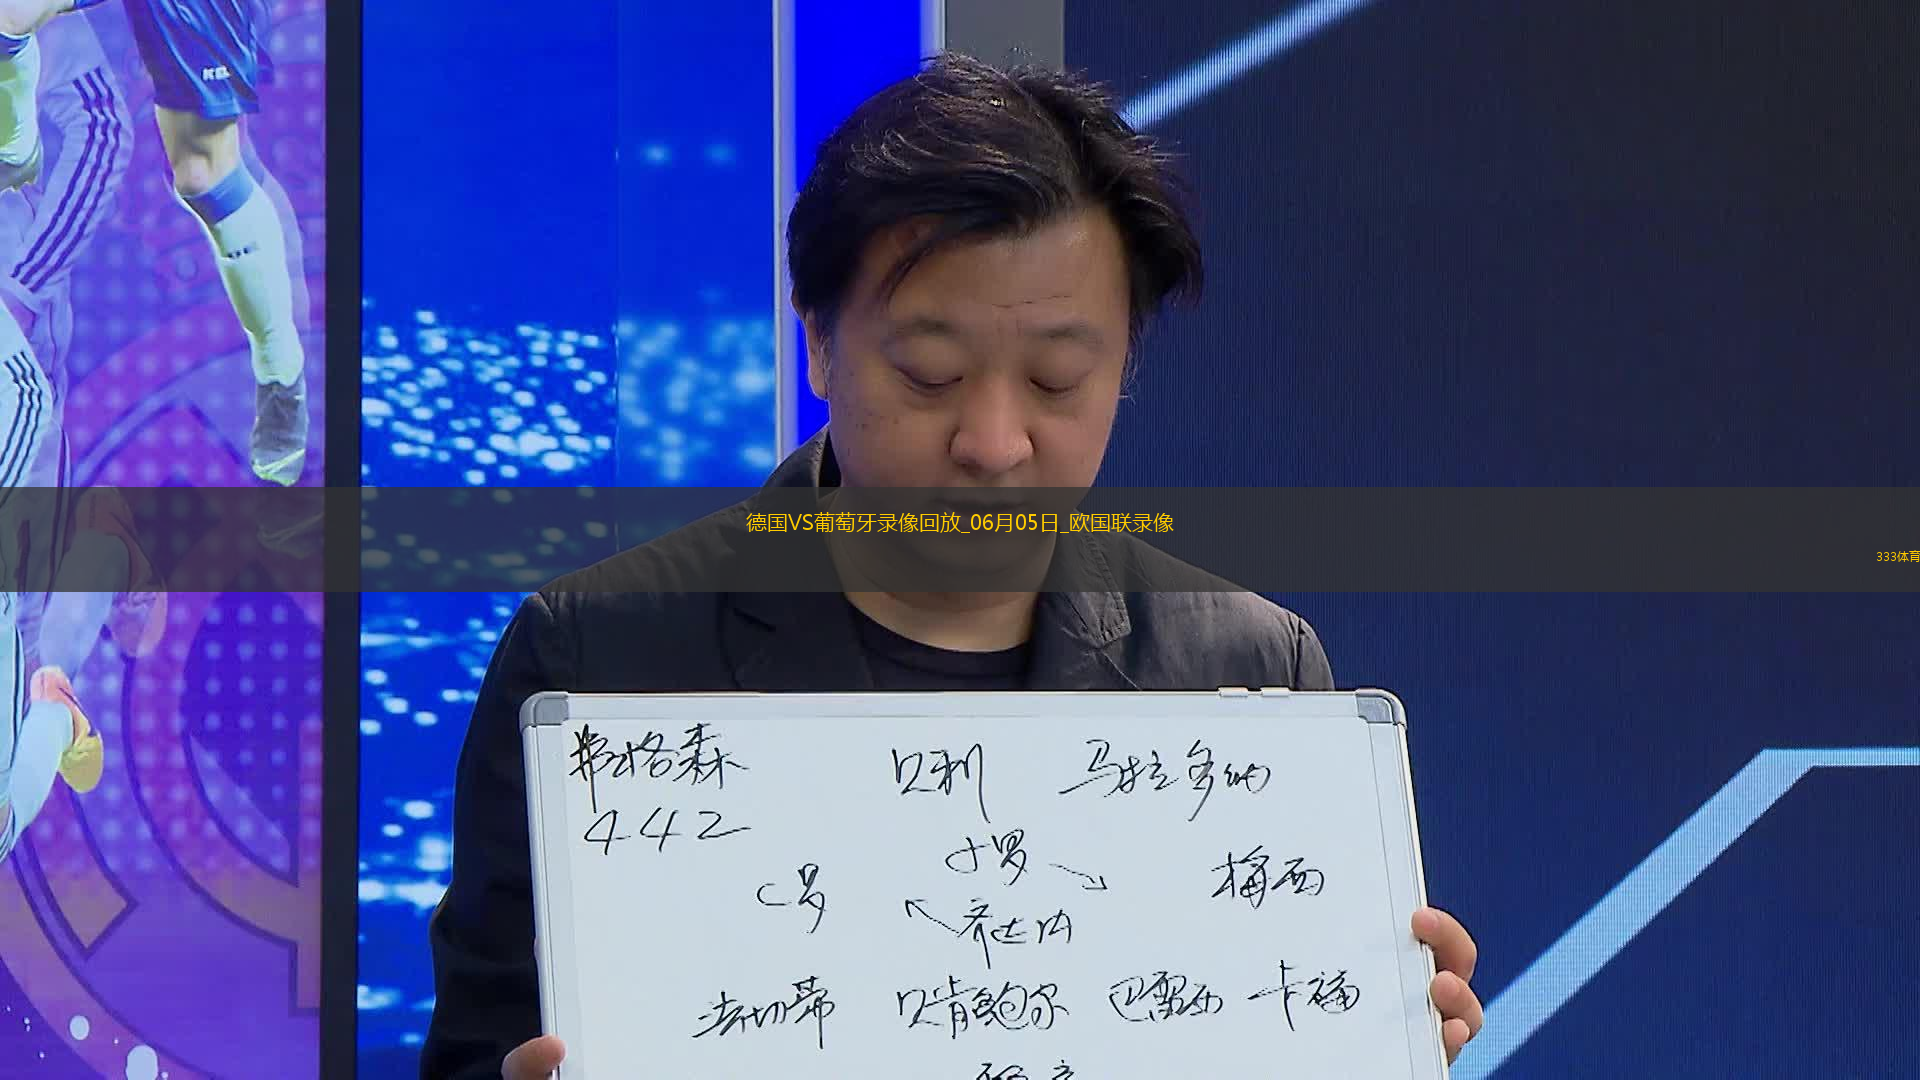 德国VS葡萄牙录像回放_06月05日_欧国联录像
333体育
弗格森 贝利 马拉多纳
442
小罗
C罗 梅西
齐达内
法切蒂 贝肯鲍尔 巴雷西 卡福